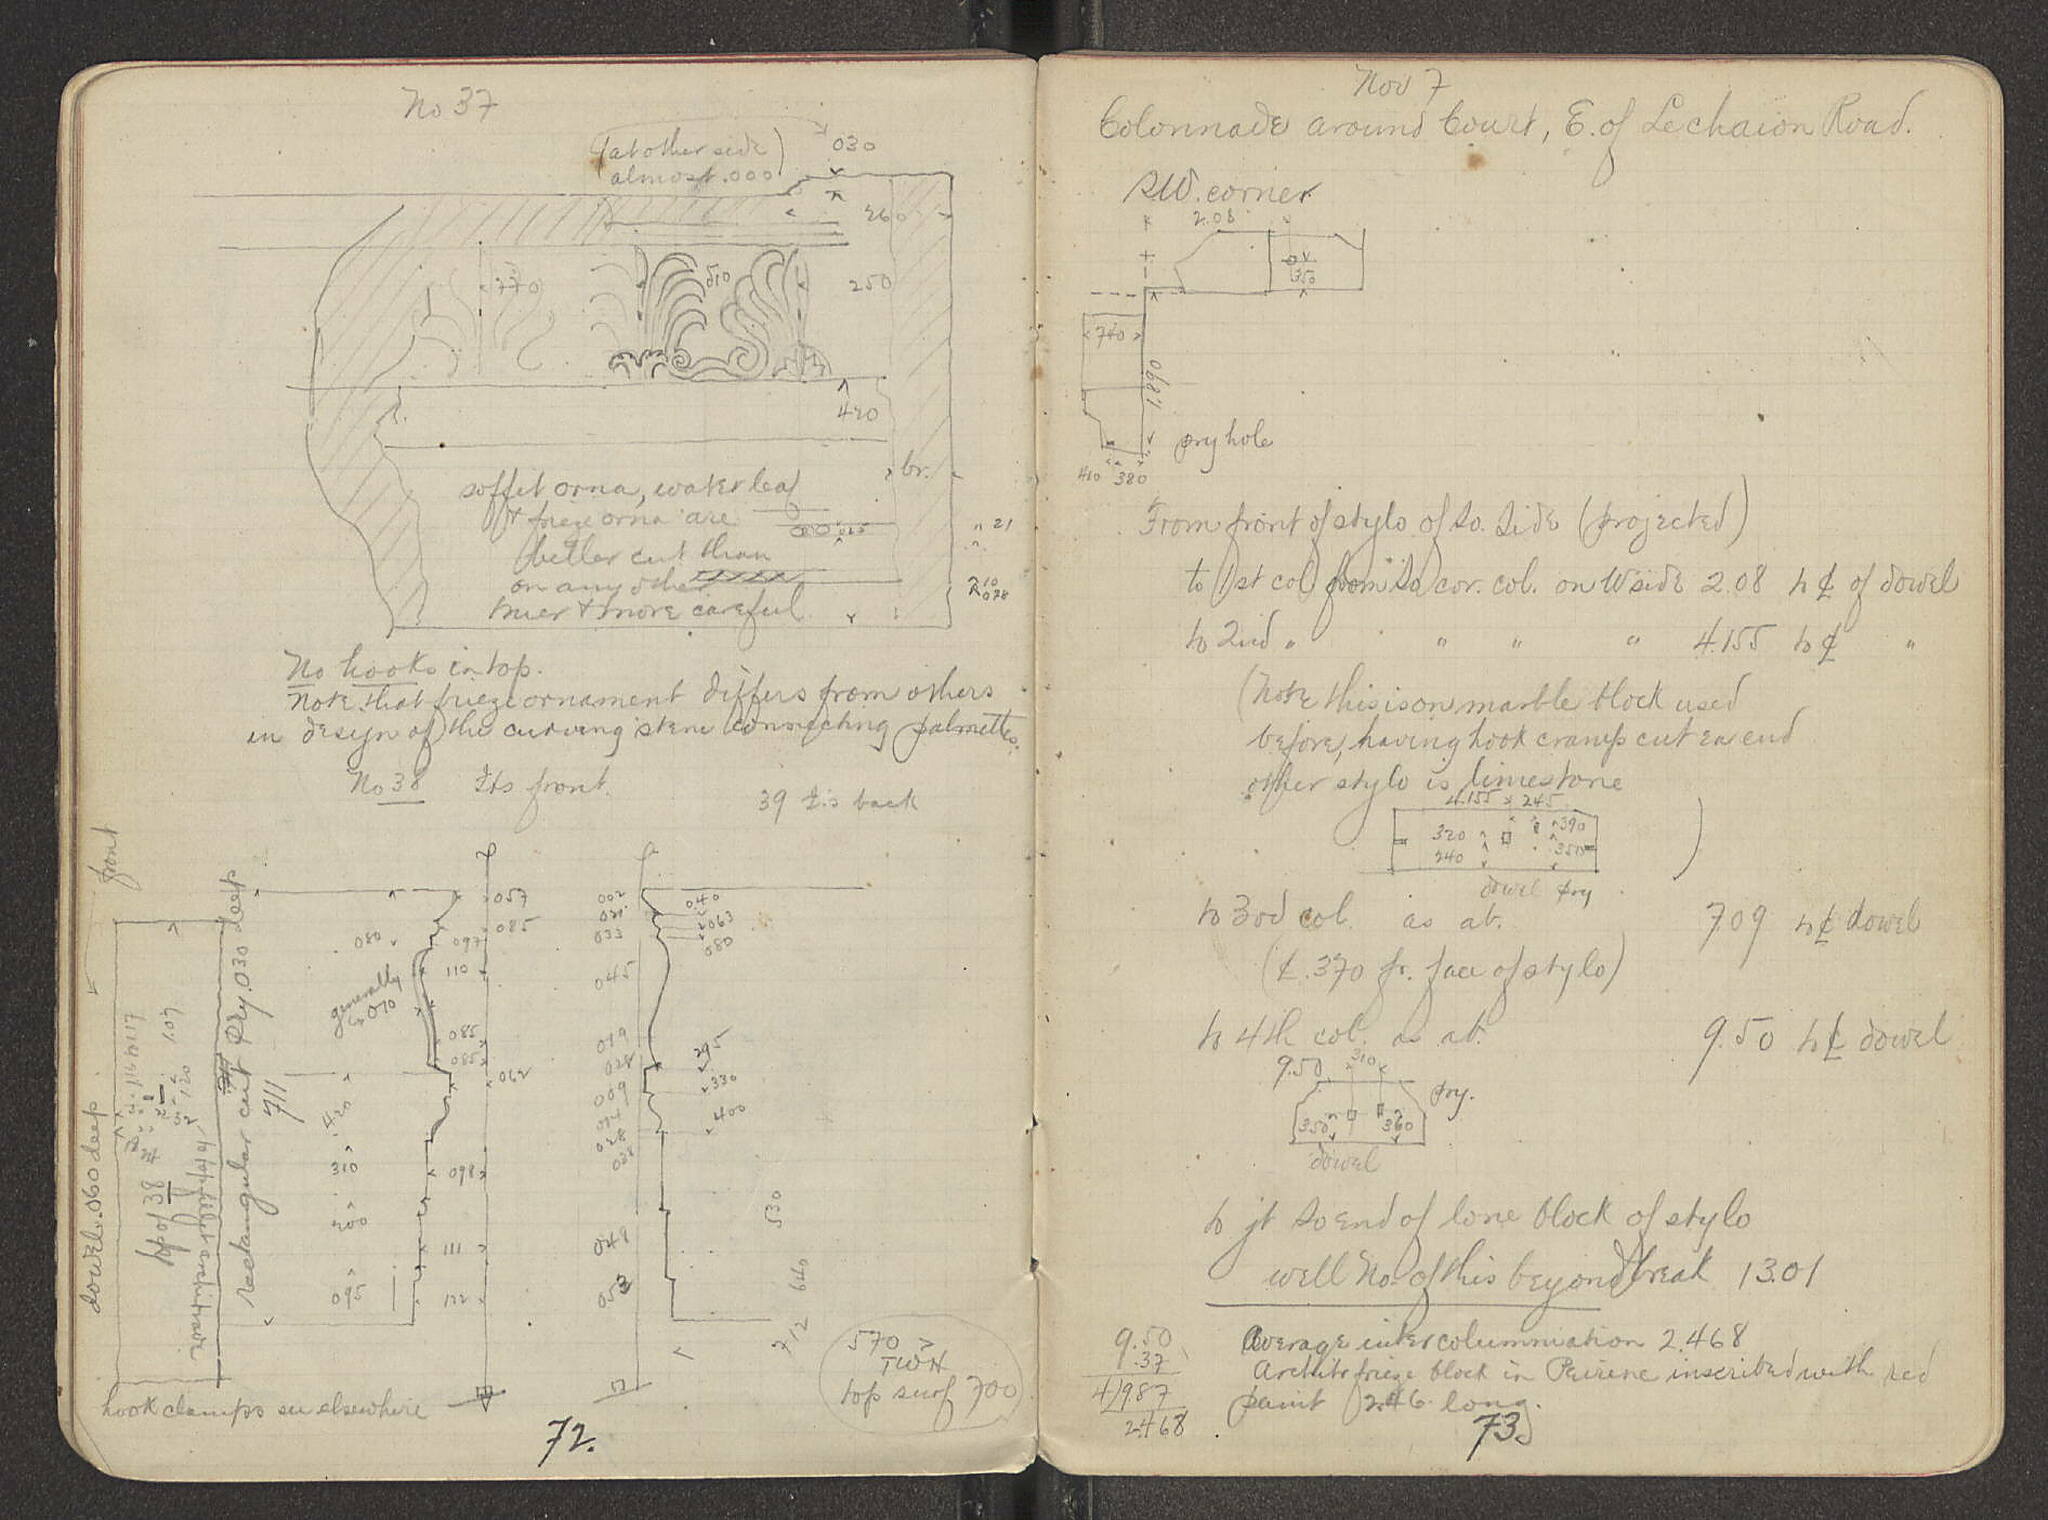 No 37
(at other side)
almost .000
030
260
770
510
250
420
br.
soffit orna, water leaf
& frieze orna are
better cut than
on any other
truer & more careful
015
21
210
078
No hooks in top.
Note that frieze ornament differs from others
in design of the curving stem connecting palmettes.
No 38 Its front.
39 is back
front
dowel .060 deep
top of 38
rectangular cut pry .030 deep
711
1.07
120
057
085
080
097
110
generally
070
085
085
062
420
310
098
200
111
095
122
002
021
033
045
019
028
009
028
028
049
053
040
063
080
295
330
400
530
640
712
570
TWH
top surf 700
hook clamps as elsewhere
72.
Nov 7
Colonnade around Court, E. of Lechaion Road.
SW. corner
2.08
350
740
1.890
pry hole
410 380
From front of stylo of So. Side (projected)
to 1st col from So cor. col. on W side 2.08 to ℄ of dowel
to 2nd " " " " 4.155 to ℄ "
(Note this is on marble block used
before, having hook cramps cut ea end
other stylo is limestone
4.155 245
320
390
240
350
dowel pry
)
to 3rd col. as ab. 7.09 to ℄ dowel
(℄ .370 fr. face of stylo)
to 4th col. as ab. 9.50 to ℄ dowel
9.50
310
pry.
350
360
dowel
to jt So end of lone block of stylo
well No. of this beyond break 13.01
9.50
.37
4)9.87
2.468
Average intercolumniation 2.468
Archit frieze block in Peirene inscribed with red
paint 2.46 long.
73.